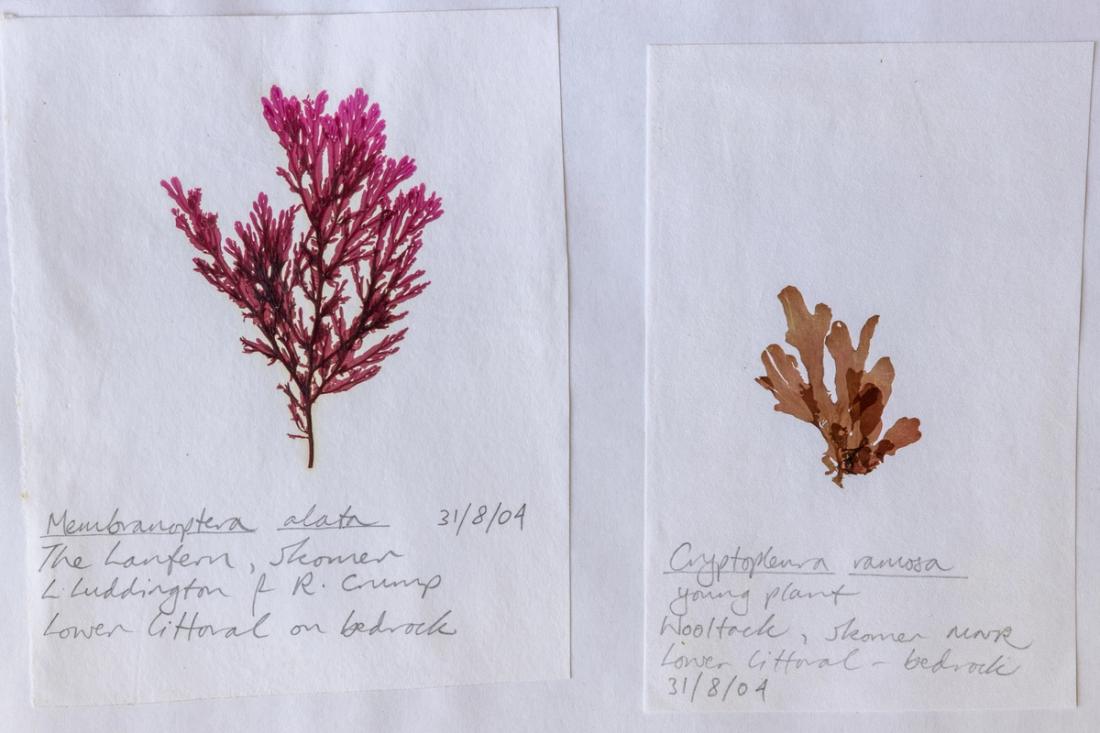 Membranoptera alata 31/8/04
The Lantern, Skomer
L. Luddington & R. Crump
Lower littoral on bedrock
Cryptopleura ramosa
young plant
Wooltack, Skomer MNR
Lower littoral - bedrock
31/8/04